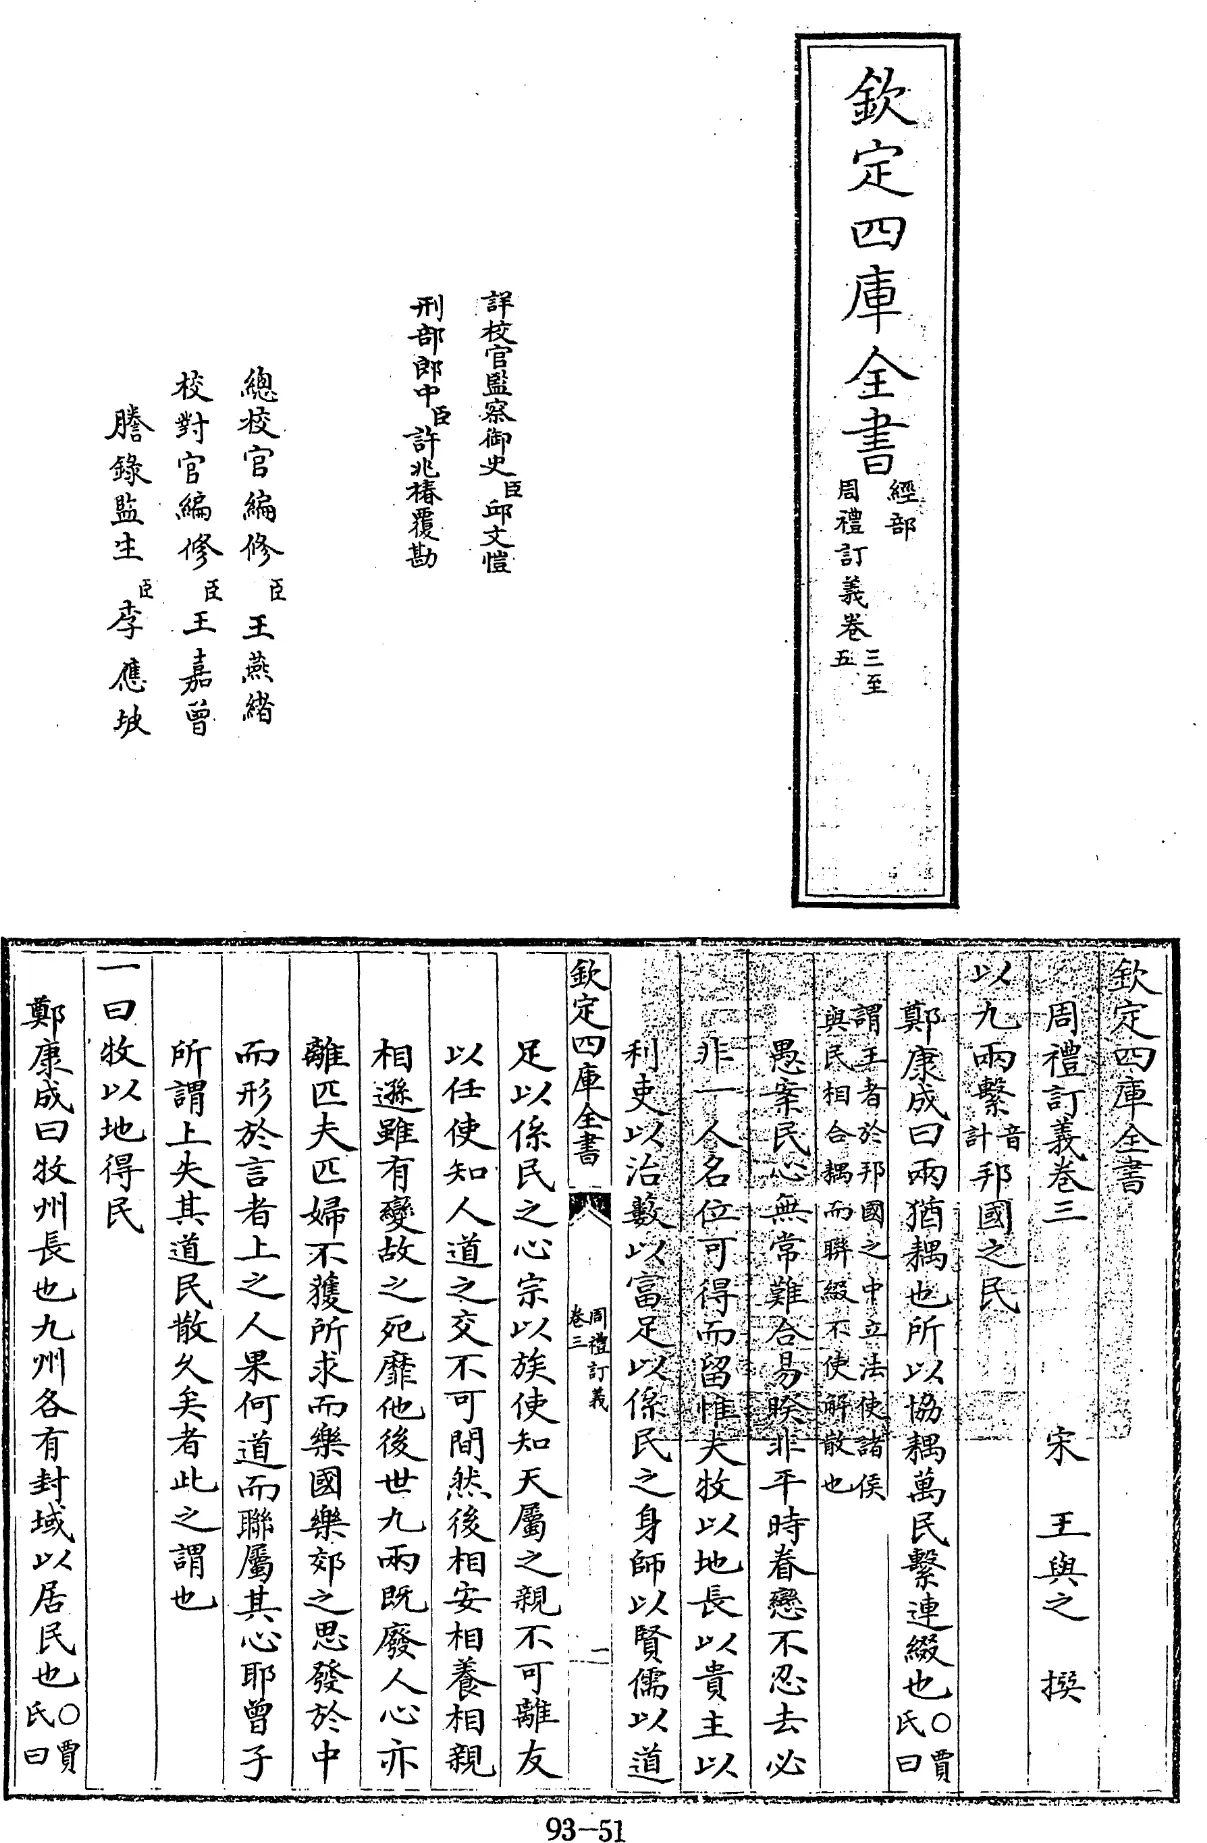 欽定四庫全書
經部
周禮訂義卷三至五
詳校官監察御史臣邱文愷
刑部郎中臣許兆椿覆勘
總校官編修臣王燕緒
校對官編修臣王嘉曾
謄錄監生臣李應坡
欽定四庫全書
周禮訂義卷三 宋 王與之 撰
以九兩繫音計邦國之民
鄭康成曰兩猶耦也所以協耦萬民繫連綴也○賈氏曰
謂王者於邦國之中立法使諸侯
與民相合耦而聯綴不使解散也
愚案民心無常難合易睽非平時眷戀不忍去必
非一人名位可得而留惟夫牧以地長以貴主以
利吏以治藪以富足以係民之身師以賢儒以道
欽定四庫全書 周禮訂義卷三 一
足以係民之心宗以族使知天屬之親不可離友
以任使知人道之交不可間然後相安相養相親
相遜雖有變故之死靡他後世九兩既廢人心亦
離匹夫匹婦不獲所求而樂國樂郊之思發於中
而形於言者上之人果何道而聯屬其心耶曾子
所謂上失其道民散久矣者此之謂也
一曰牧以地得民
鄭康成曰牧州長也九州各有封域以居民也○賈氏曰
93-51